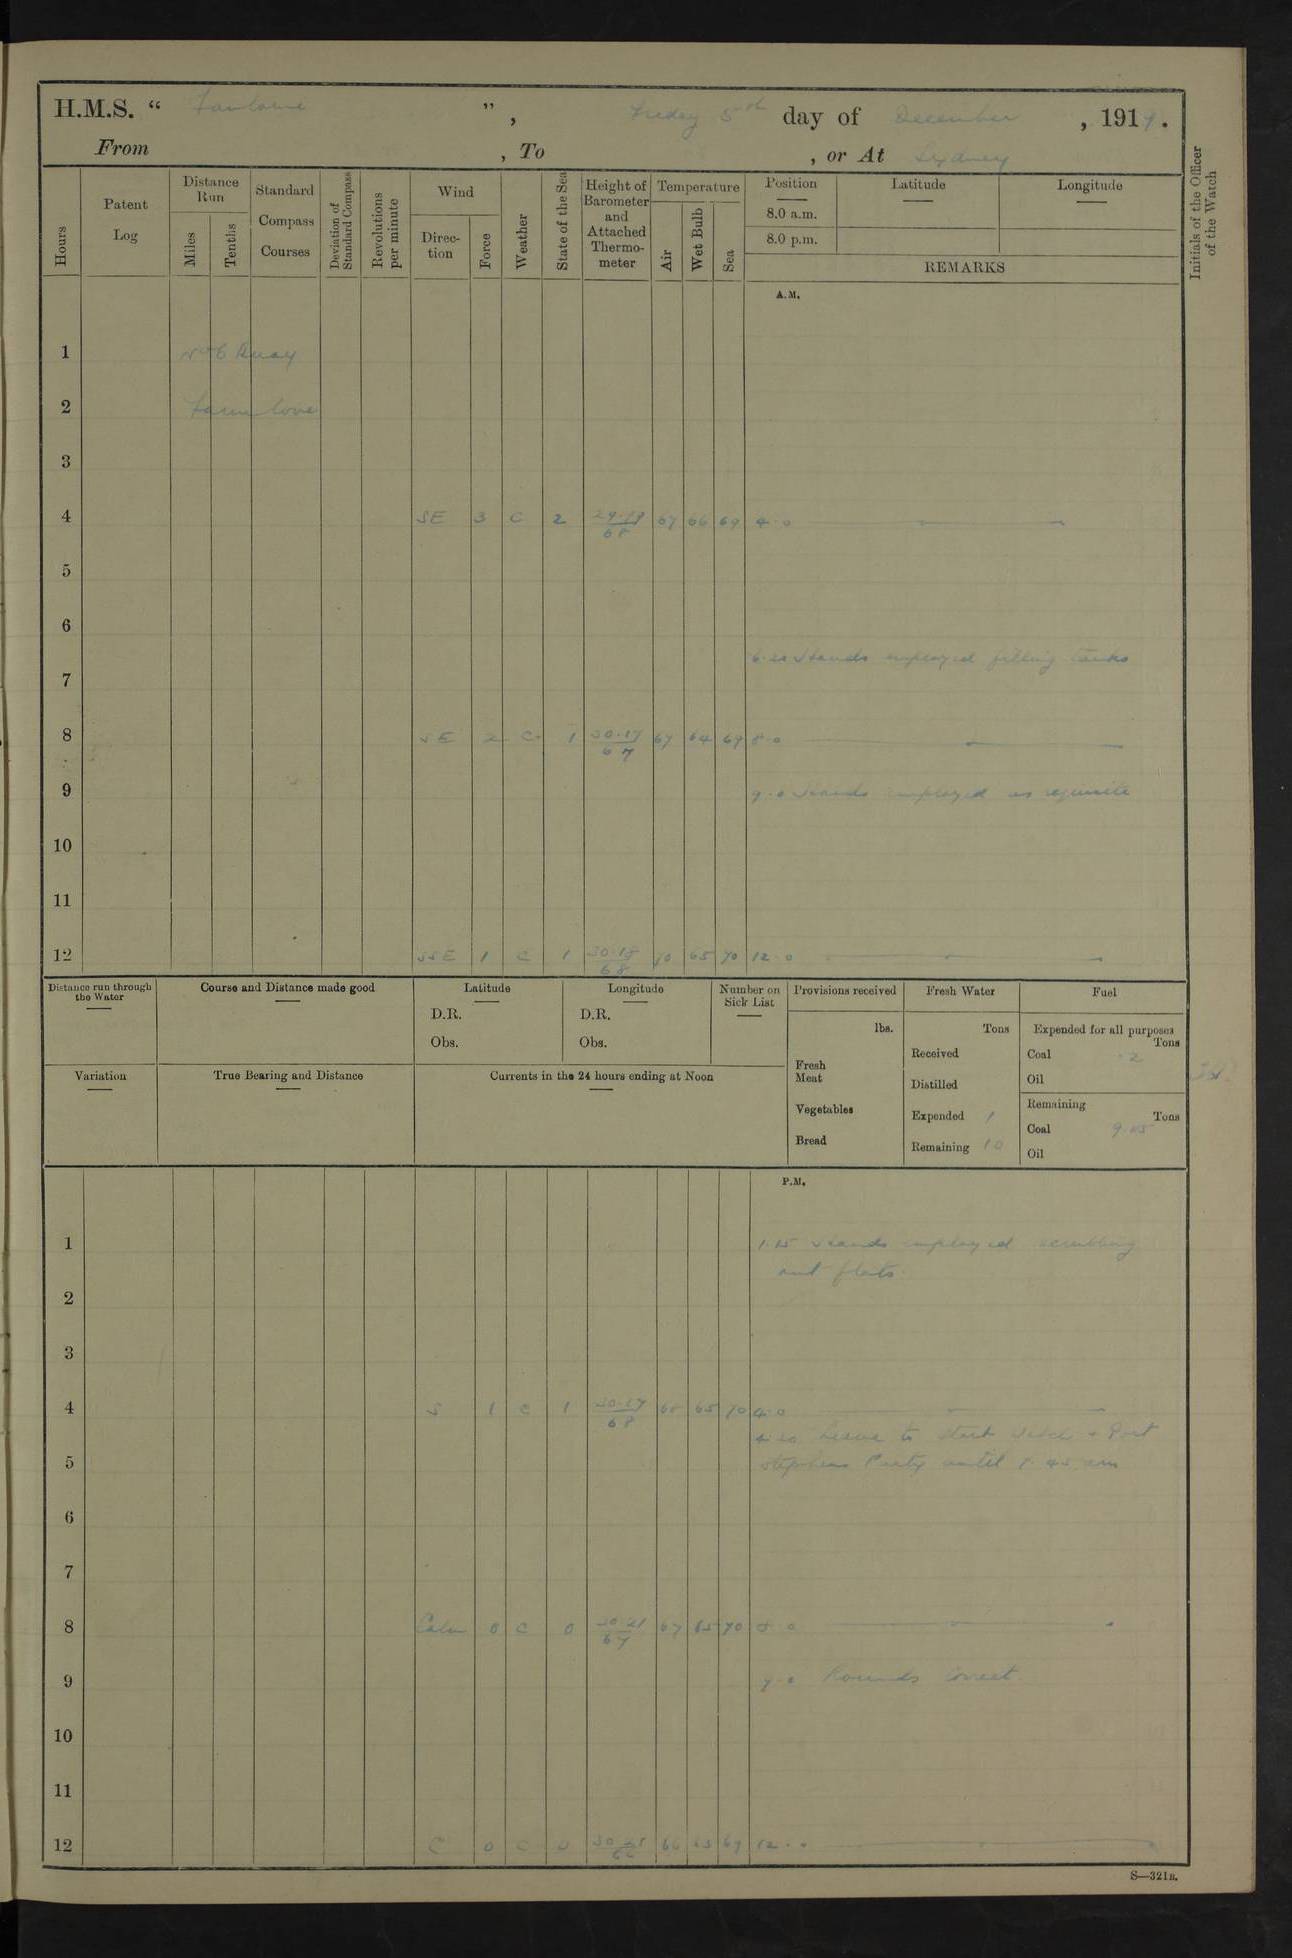 H.M.S. “ Fantome ”, Friday 5th day of December, 1919.
From , To , or At Sydney
Hours
Patent Log
Distance Run
Miles
Tenths
Standard Compass Courses
Deviation of Standard Compass
Revolutions per minute
Wind
Direction
Force
Weather
State of the Sea
Height of Barometer and Attached Thermometer
Temperature
Air
Wet Bulb
Sea
Position
8.0 a.m.
8.0 p.m.
Latitude
Longitude
REMARKS
Initials of the Officer of the Watch
A.M.
1 No 6 Buoy
2 Farm Cove
3
4 SE 3 C 2 29.19 68 67 66 69 4.0
5
6
Hands employed filling tanks
7
8 SE 2 C 1 30.17 67 67 64 69 8.0
9 9.0 Hands employed as requisite
10
11
12 SSE 1 C 1 30.18 68 70 65 70 12.0
Distance run through the Water
Course and Distance made good
Latitude
D.R.
Obs.
Longitude
D.R.
Obs.
Number on Sick List
Variation
True Bearing and Distance
Currents in the 24 hours ending at Noon
Provisions received
lbs.
Fresh Meat
Vegetables
Bread
Fresh Water
Tons
Received
Distilled
Expended 1
Remaining 10
Fuel
Expended for all purposes
Tons
Coal .2
Oil
Remaining
Tons
Coal
Oil
P.M.
1 1.15 Hands employed scrubbing
out flats.
2
3
4 S 1 C 1 30.17 68 65 70 4.0
Leave to Starb Watch & Port
5 Stephens Party until 7.45 am
6
7
8 Calm 0 C 0 30.21 67 67 65 70 8.0
9 9.0 Rounds Correct.
10
11
12 C 0 C 0 66 66 69 12.0
S—321B.